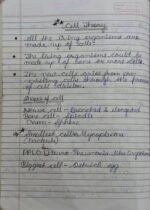 Cell Theory
• All the living organisms are
made up of cells.
• The living organisms could be
made up of one or more cells.
• The new cells arises from pre-
existing cells through the process
of cell division.
Shapes of cell
Nerve cell - Branched & elongated
Bone cell - Spindle
Ovum - Sphere
Smallest cell - Mycoplasma
PPLO
Biggest cell - Ostrich egg